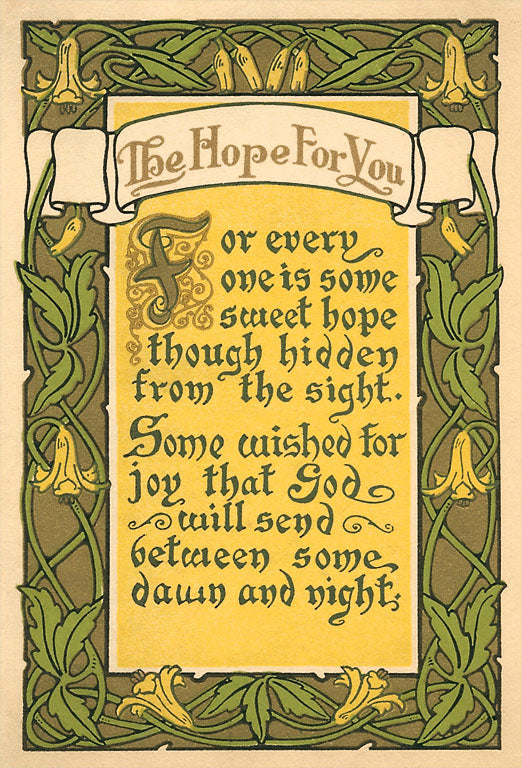 The Hope For You
For every
one is some
sweet hope
though hidden
from the sight.
Some wished for
joy that God
will send
between some
dawn and night;